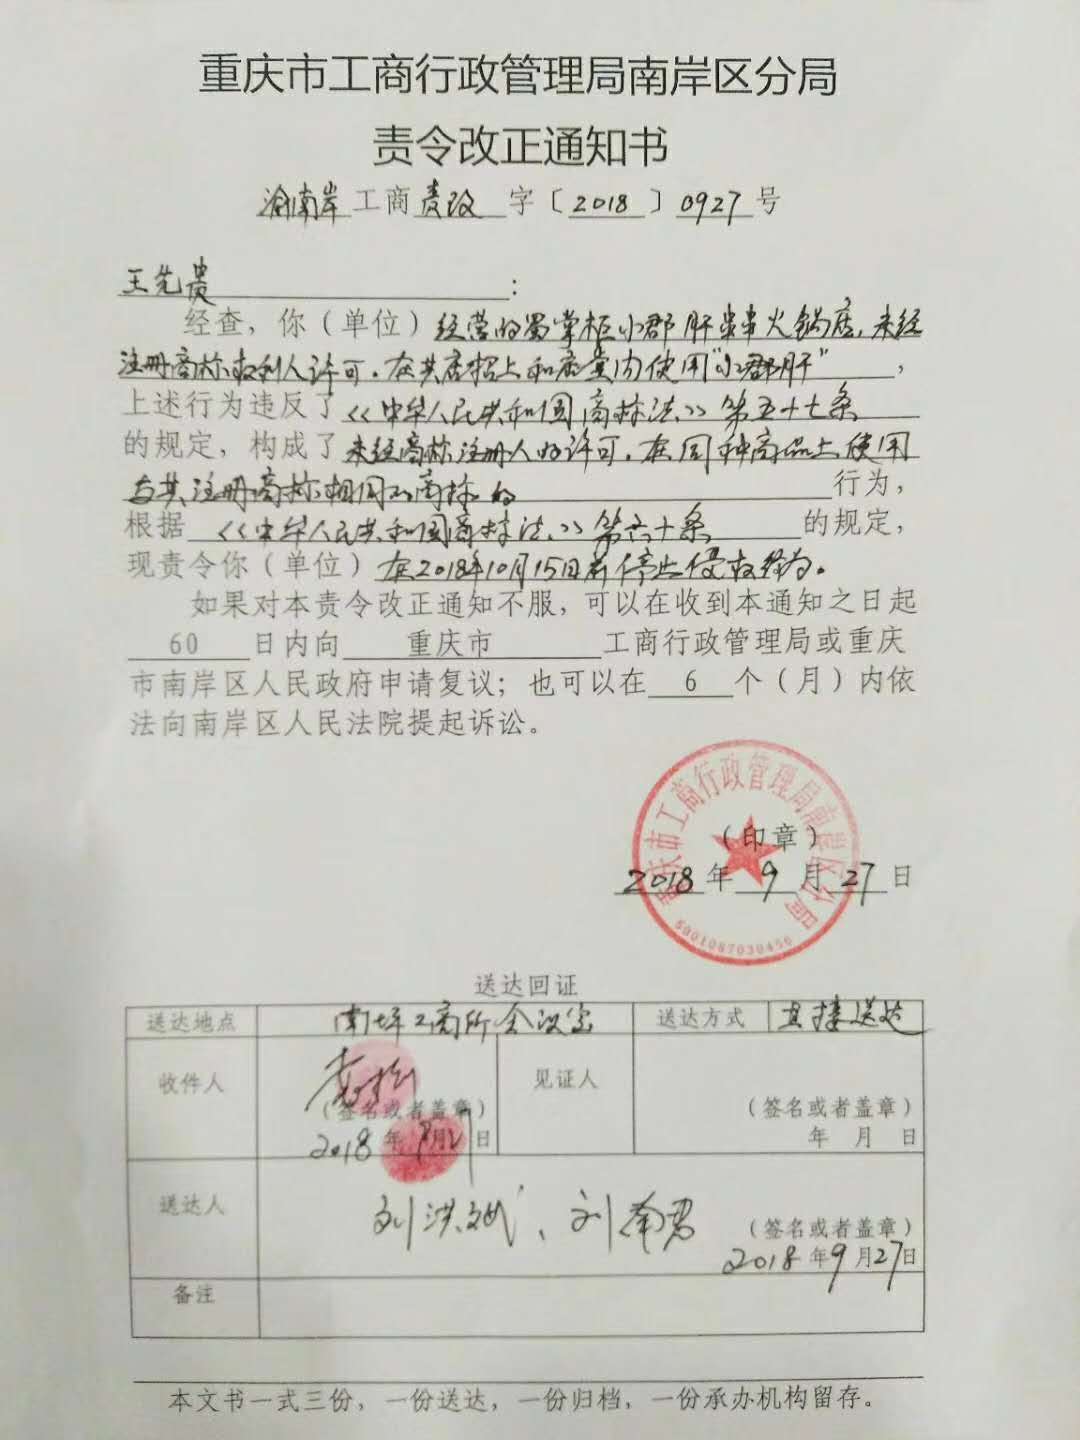 重庆市工商行政管理局南岸区分局
责令改正通知书
渝南岸工商责改字〔2018〕0927号
王先贵:
经查，你（单位）经营的蜀掌柜小郡肝串串火锅店，未经
注册商标权利人许可，在其店招上和店堂内使用“小郡肝”，
上述行为违反了《中华人民共和国商标法》第五十七条
的规定，构成了未经商标注册人的许可，在同种商品上使用
与其注册商标相同的商标的行为，
根据《中华人民共和国商标法》第六十条的规定，
现责令你（单位）在2018年10月15日前停止侵权行为。
如果对本责令改正通知不服，可以在收到本通知之日起
60日内向重庆市工商行政管理局或重庆
市南岸区人民政府申请复议；也可以在6个（月）内依
法向南岸区人民法院提起诉讼。
重庆市工商行政管理局南岸区分局
（印章）
2018年9月27日
送达回证
送达地点 南坪工商所会议室 送达方式 直接送达
收件人 见证人
（签名或者盖章） （签名或者盖章）
2018年9月日 年 月 日
送达人 刘洪斌、刘南君 （签名或者盖章）
2018年9月27日
备注
本文书一式三份，一份送达，一份归档，一份承办机构留存。